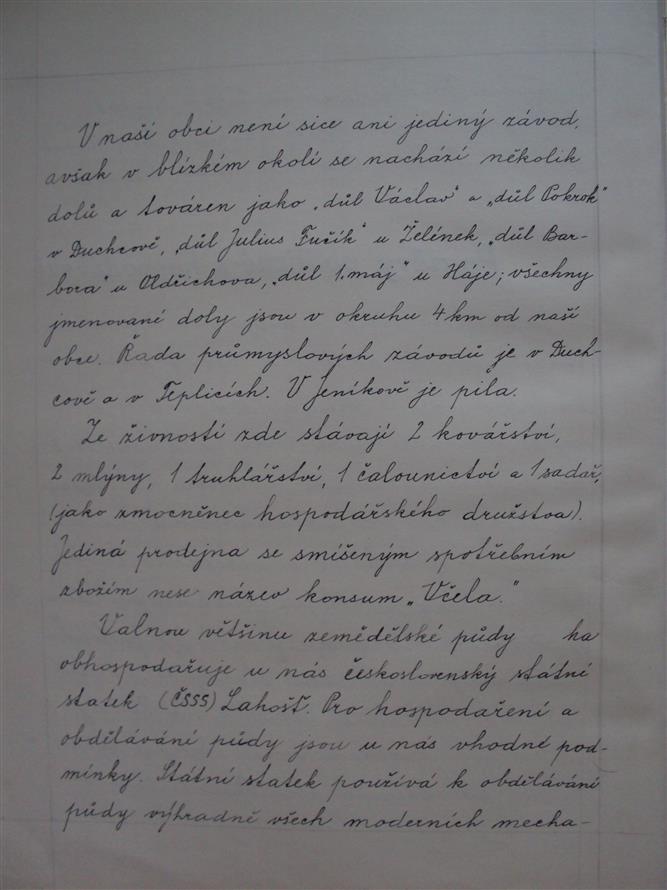 V naší obci není sice ani jediný závod,
avšak v blízkém okolí se nachází několik
dolů a továren jako „důl Václav" a „důl Pokrok"
v Duchcově, „důl Julius Fučík" u Želének, „důl Bar-
bora" u Oldřichova, „důl 1. máj" u Háje; všechny
jmenované doly jsou v okruhu 4 km od naší
obce. Řada průmyslových závodů je v Duch-
cově a v Teplicích. V Jeníkově je pila.
Ze živností zde stávají 2 kovářství,
2 mlýny, 1 truhlářství, 1 čalounictví a 1 sadař,
(jako zmocněnec hospodářského družstva).
Jediná prodejna se smíšeným spotřebním
zbožím nese název konsum „Včela."
Valnou většinu zemědělské půdy ha
obhospodařuje u nás československý státní
statek (ČSSS) Lahošť. Pro hospodaření a
obdělávání půdy jsou u nás vhodné pod-
mínky. Státní statek používá k obdělávání
půdy výhradně všech moderních mecha-